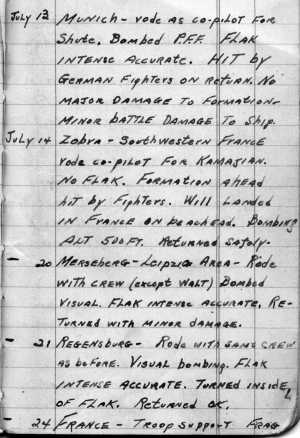 July 13 Munich - rode as co-pilot for
Shute. Bombed P.F.F. Flak
intense accurate. Hit by
German Fighters on return. No
major damage to formation
minor battle damage to ship.
July 14 Zobra - Southwestern France
rode co-pilot for Kamajian.
No flak. Formation ahead
hit by fighters. Will landed
in France on beachead. Bombing
alt 500 ft. Returned safely.
- 20 Merseberg - Leipzig Area - Rode
with crew (except Walt) Bombed
visual. Flak intense accurate. Re-
turned with minor damage.
- 21 Regensburg - Rode with same crew
as before. Visual bombing. Flak
intense accurate. Turned inside
of flak. Returned OK.
- 24 France - Troop support Frag